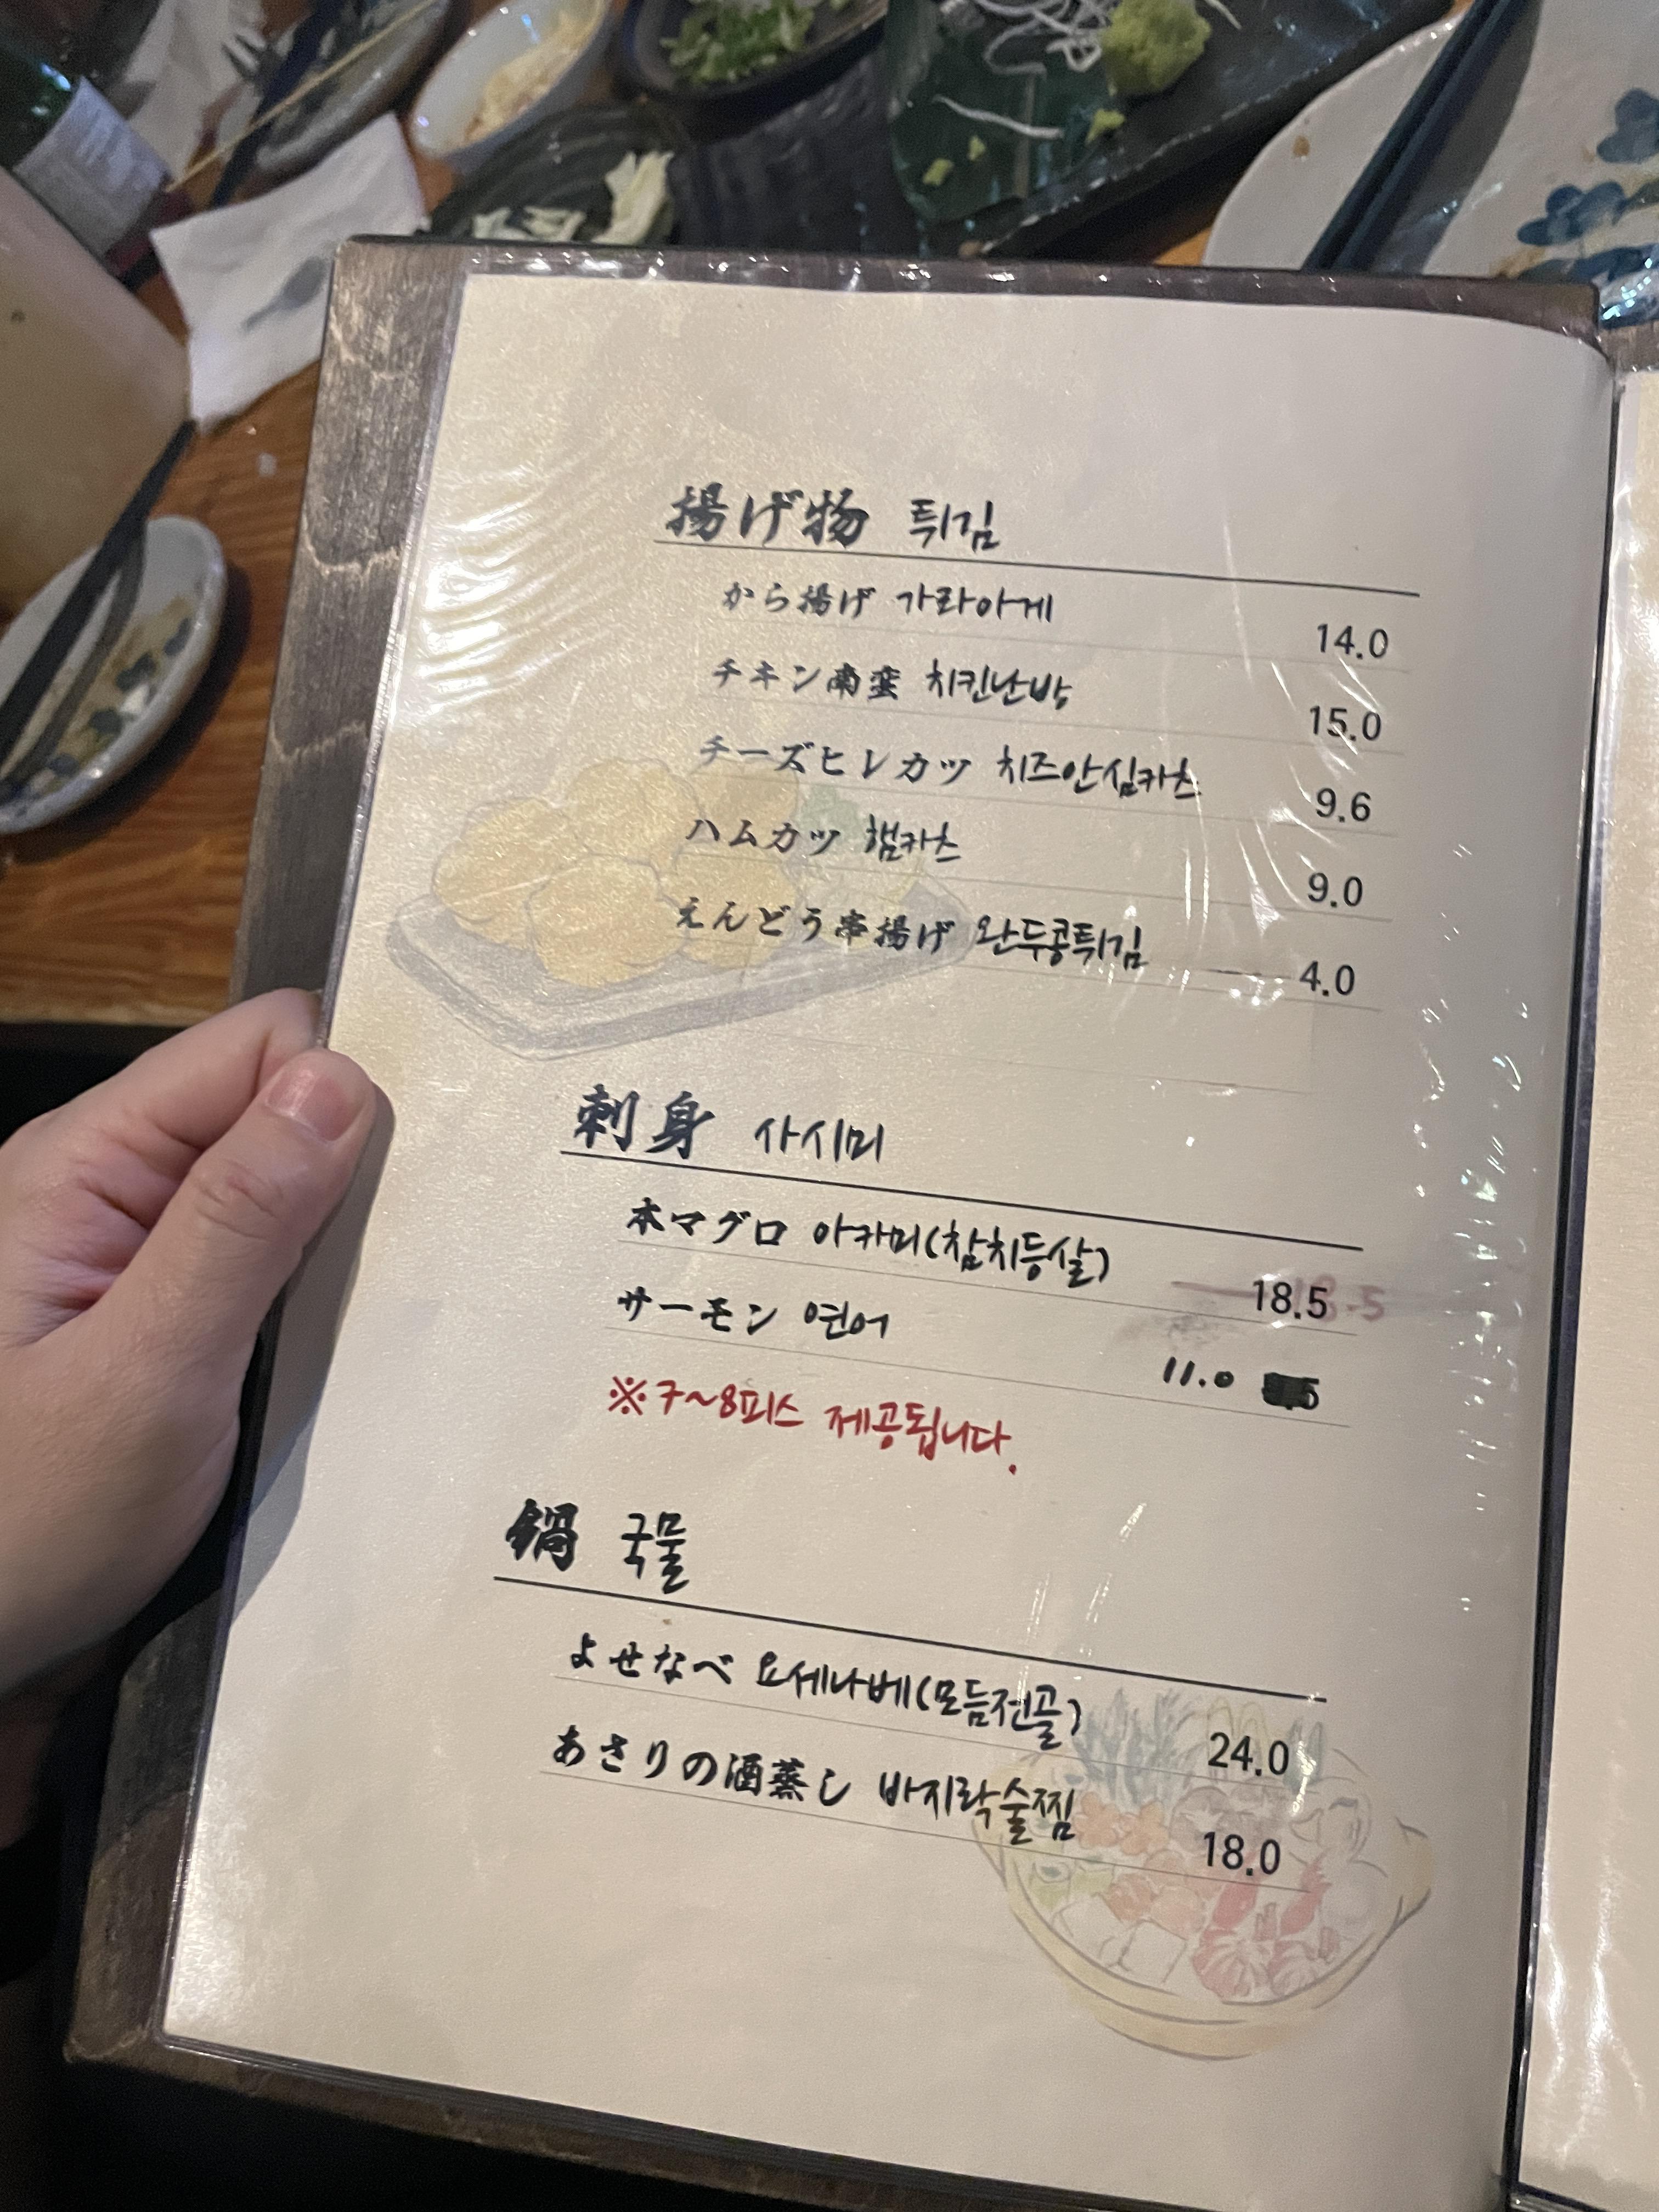 揚げ物 튀김
から揚げ 가라아게 14.0
チキン南蛮 치킨난방 15.0
チーズヒレカツ 치즈안심카츠 9.6
ハムカツ 햄카츠 9.0
えんどう串揚げ 완두콩튀김 4.0
刺身 사시미
本マグロ 아카미(참치등살) 18.5
サーモン 연어 11.0
※7~8피스 제공됩니다.
鍋 국물
よせなべ 요세나베(모듬전골) 24.0
あさりの酒蒸し 바지락술찜 18.0